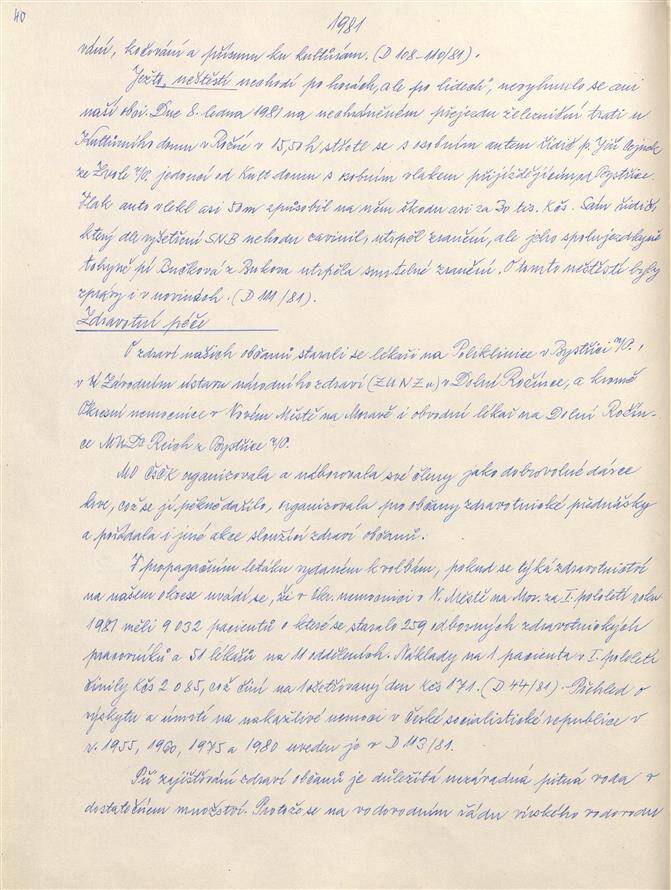 40
1981
vání, kočování a přísunu ku kultúrám. (D 108-110/81).
Ježto „neštěstí nechodí po horách, ale po lidech", nevyhnulo se ani
naší obci. Dne 8. ledna 1981 na nechráněném přejezdu železniční trati u
Kulturního domu v Rožné v 15,50 h střetl se s osobním autem řidič p. Jiří
ze Zvole n/P. jedoucí od Kult. domu s osobním vlakem přijíždějícím od Bystřice.
Vlak auto vlekl asi 50 m způsobil na něm škodu asi za 30 tis. Kčs. Sám řidič,
který dle vyšetření SNB nehodu zavinil, utrpěl zranění, ale jeho spolujezdkyně
totiž pí Bučková z Bukova utrpěla smrtelné zranění. O tomto neštěstí byly
zprávy i v novinách. (D 111/81).
Zdravotní péče
O zdraví našich občanů starali se lékaři na Poliklinice v Bystřici n/P.,
v Závodním ústavu národního zdraví (ZÚNZu) v Dolní Rožínce, a kromě
Okresní nemocnice v Novém Městě na Moravě i obvodní lékař na Dolní Rožín-
ce MUDr Reich z Bystřice n/P.
MO ČSČK organizovala a náborovala své členy jako dobrovolné dárce
krve, což se jí pěkně dařilo, organizovala pro občany zdravotnické přednášky
a pořádala i jiné akce sloužící zdraví občanů.
V propagačním letáku vydaném k volbám, pokud se týká zdravotnictví
na našem okrese uvádí se, že v Okr. nemocnici v N. Městě na Mor. za I. pololetí roku
1981 měli 9 032 pacientů o které se staralo 259 odborných zdravotnických
pracovníků a 51 lékařů na 11 odděleních. Náklady na 1 pacienta v I. pololetí
činily Kčs 2 085, což činí na 1 ošetřovaný den Kčs 171. (D 44/81). Přehled o
výskytu a úmrtí na nakažlivé nemoci v České socialistické republice v
r. 1955, 1960, 1975 a 1980 uveden je v D 113/81.
Při zajišťování zdraví občanů je důležitá nezávadná pitná voda v
dostatečném množství. Protože se na vodovodním řádu vírského vodovodu